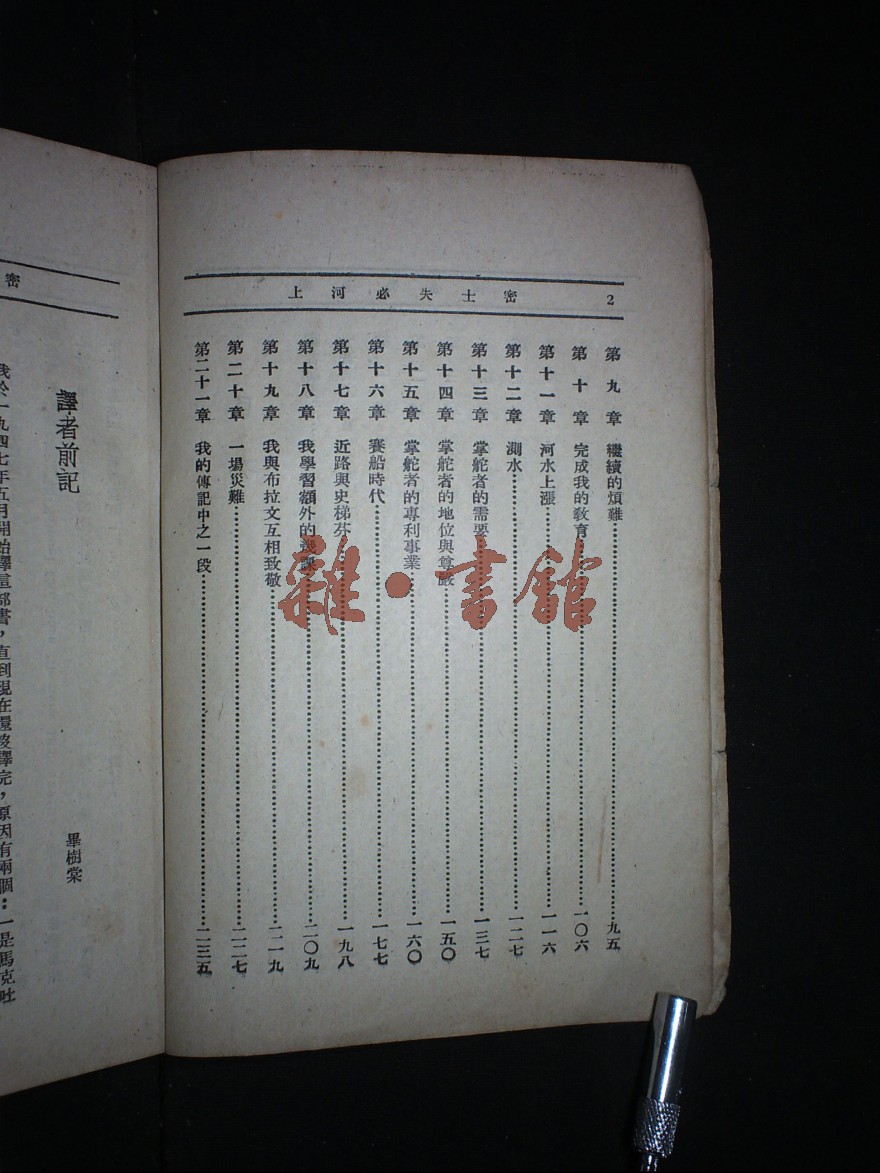 2 密士失必河上
第九章 繼續的煩難……九五
第十章 完成我的敎育……一〇六
第十一章 河水上漲……一一六
第十二章 測水……一二七
第十三章 掌舵者的需要……一三七
第十四章 掌舵者的地位與尊嚴……一五〇
第十五章 掌舵者的專利事業……一六〇
第十六章 賽船時代……一七七
第十七章 近路與史梯芬……一九八
第十八章 我學習額外的幾課……二〇九
第十九章 我與布拉文互相致敬……二一九
第二十章 一場災難……二二七
第二十一章 我的傳記中之一段……二三五
雜·書館
密
譯者前記
畢樹棠
我於一九四七年五月開始譯這部書，直到現在還沒譯完，原因有兩個：一是馬克吐